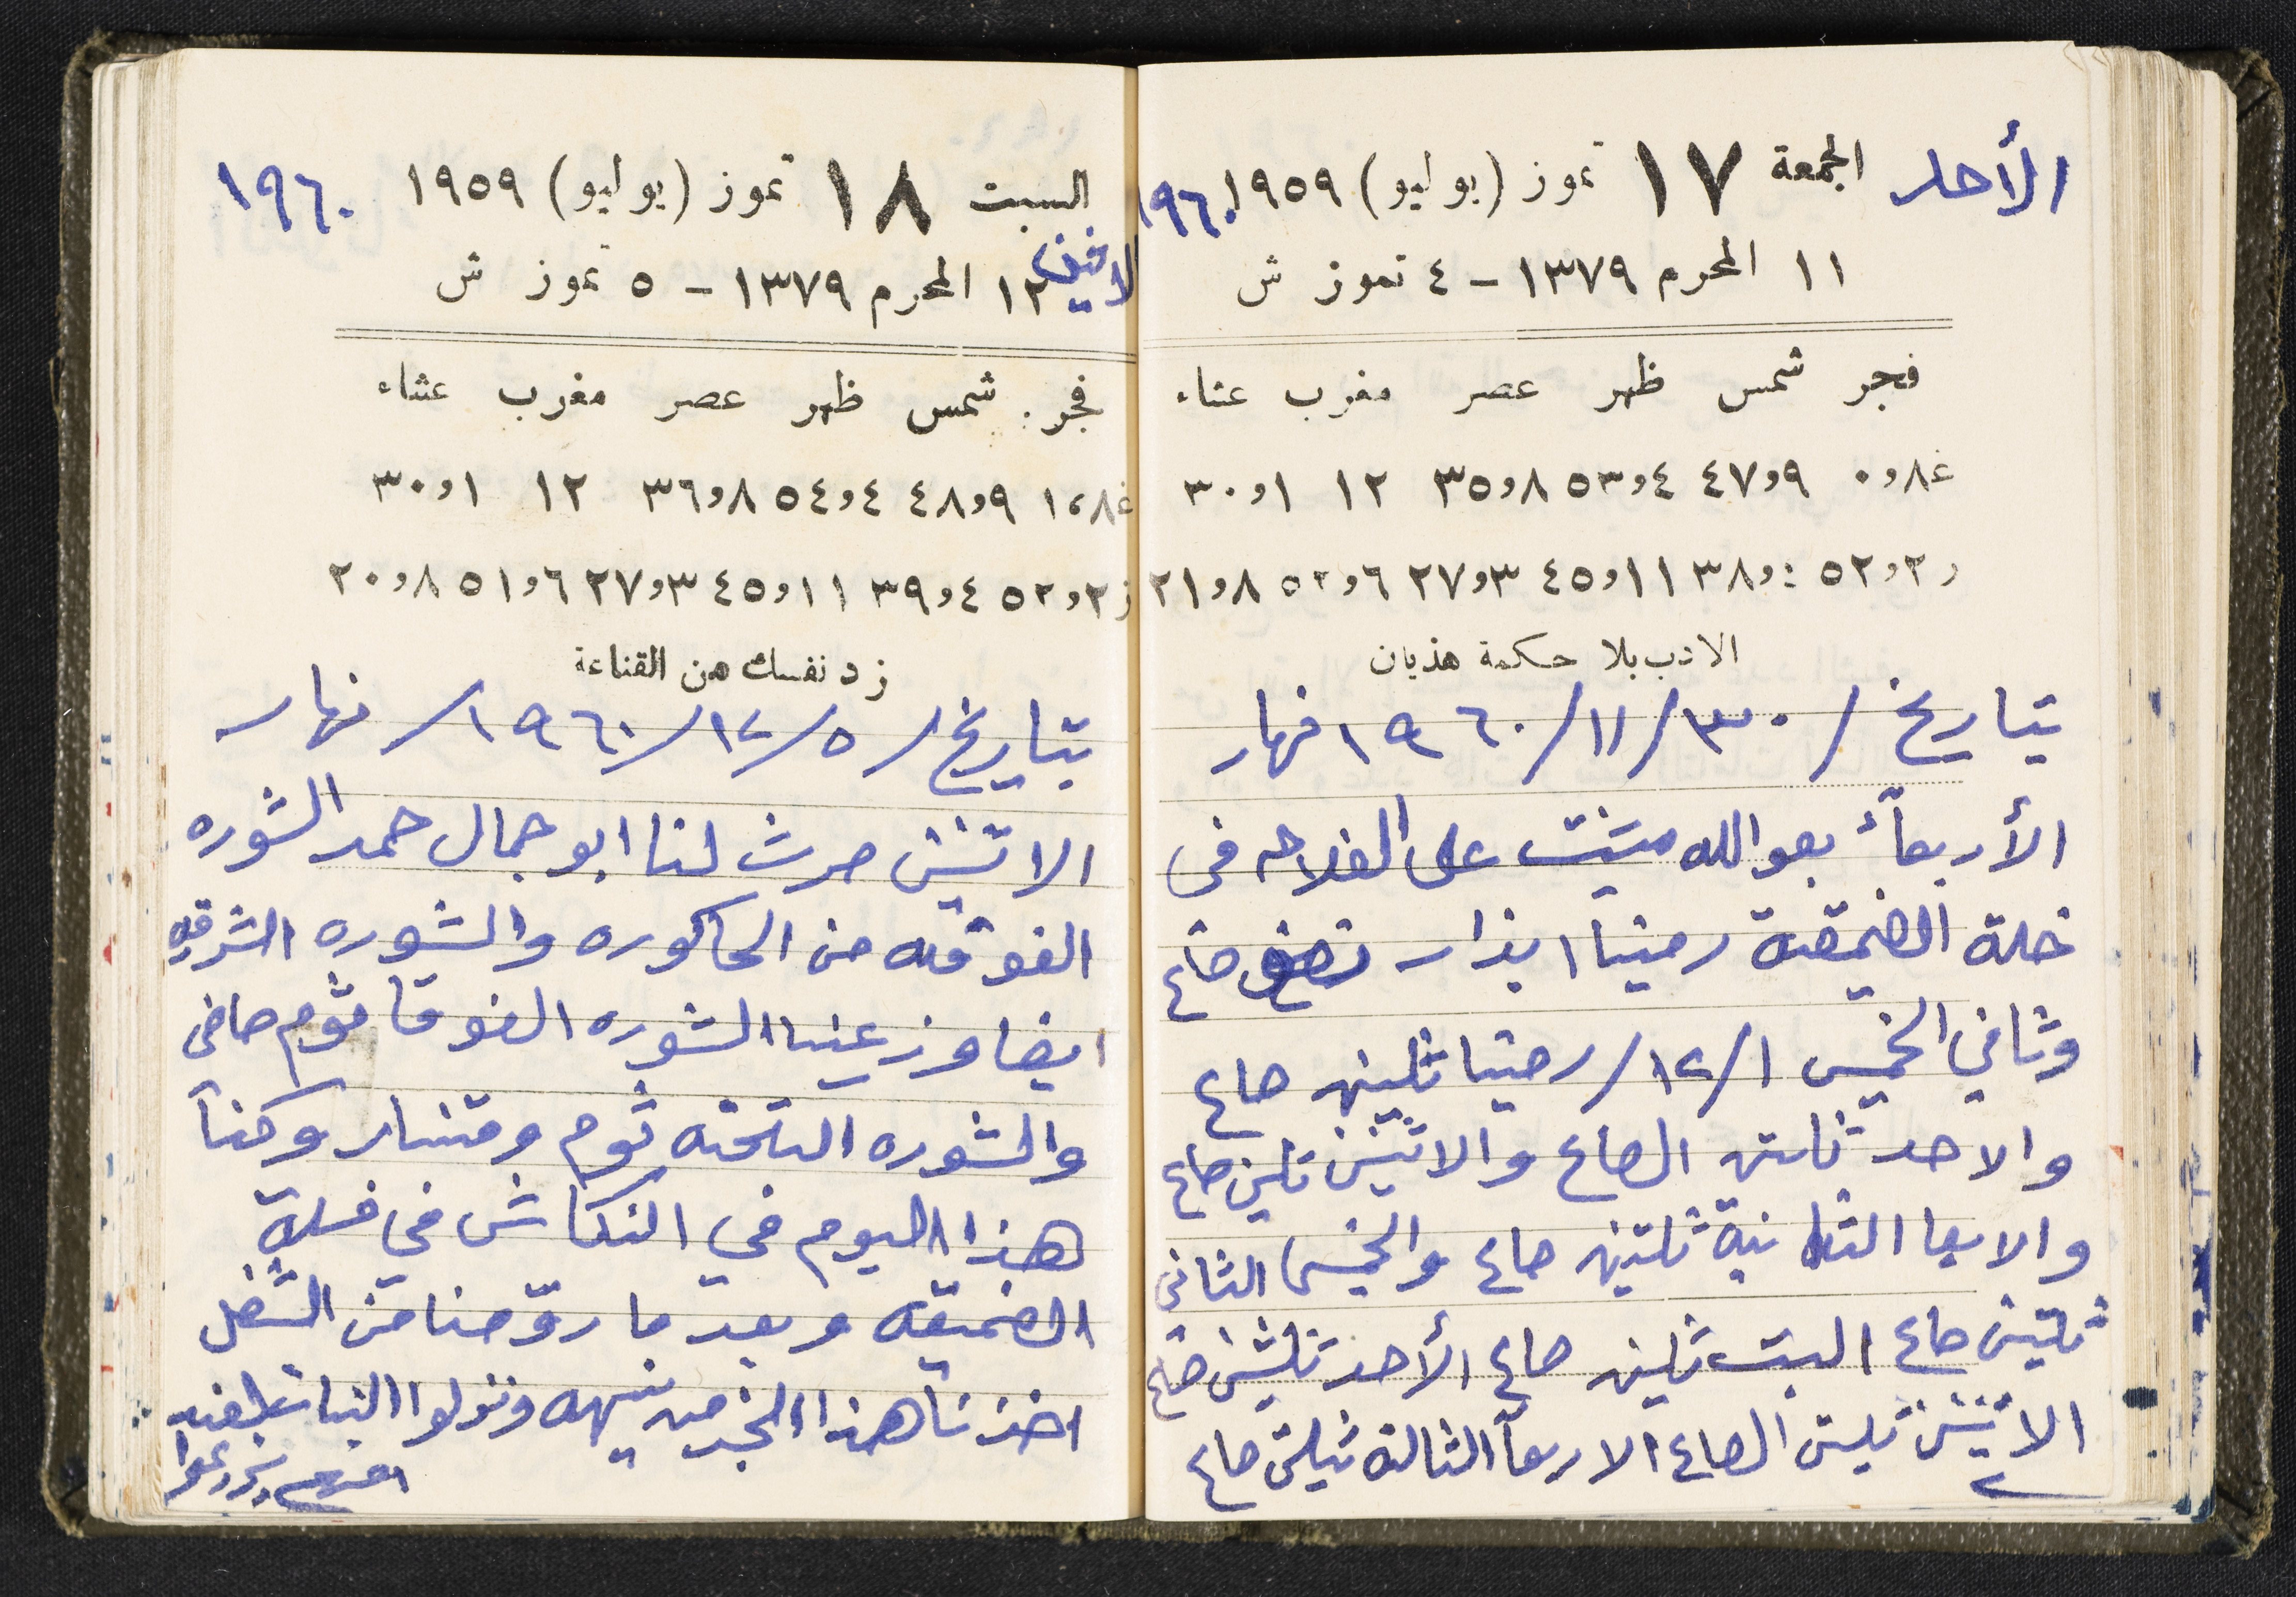 الأحد الجمعة ١٧ تموز (يوليو) ١٩٥٩ ١٩٦٠
١١ المحرم ١٣٧٩ - ٤ تموز ش
فجر شمس ظهر عصر مغرب عشاء
غ ٨و٠ ٩و٤٧ ٤و٥٣ ٨و٣٥ ١٢ ١و٣٠
٢و٥٢ ٣٨و ١١و٤٥ ٣و٢٧ ٦و٥٢ ٨و٢١
الادب بلا حكمة هذيان
بتاريخ / ٣٠/ ١١/ ١٩٦٠ نهار
الأربعآء بعو الله على الفلاحه في
خلة الضميقة رمينا ابذار نصف صاع
وثاني الخميس ١/ ١٢/ رمينا ثلين صاع
والاحد ثلثين الصاع والاثنين ثلين صاع
والاربعا الثانية ثلثين صاع والخميس الثاني
ثلثين صاع السبت ثلين صاع الأحد ثلثين صاع
الاثنين ثلين الصاع الاربعآ الثالثة ثلثين صاع
السبت ١٨ تموز (يوليو) ١٩٥٩ ١٩٦٠
الاثنين ١٢ المحرم ١٣٧٩ - ٥ تموز ش
فجر شمس ظهر عصر مغرب عشاء
غ ٨،١ ٩و٤٨ ٤و٥٤ ٨و٣٦ ١٢ ١و٣٠
ز ٢و٥٢ ٤و٣٩ ١١و٤٥ ٣و٢٧ ٦و٥١ ٨و٢٠
زد نفسك من القناعة
بتاريخ / ٥/ ١٢/ ١٩٦٠/ نهار
الاثنين حرث لنا ابو جمال حمد الشوره
الفوقه من الحاكوره والشوره الشرقيه
ايضا وزرعينا الشوره الفوقا ثوم صافي
والشوره التحته ثوم و وكنا
هذا اليوم في النكاش في خلة
الضميقه وبعد ما روّحنا من الشغل
اخذنا هذا الخبر من ونزلوا البنات